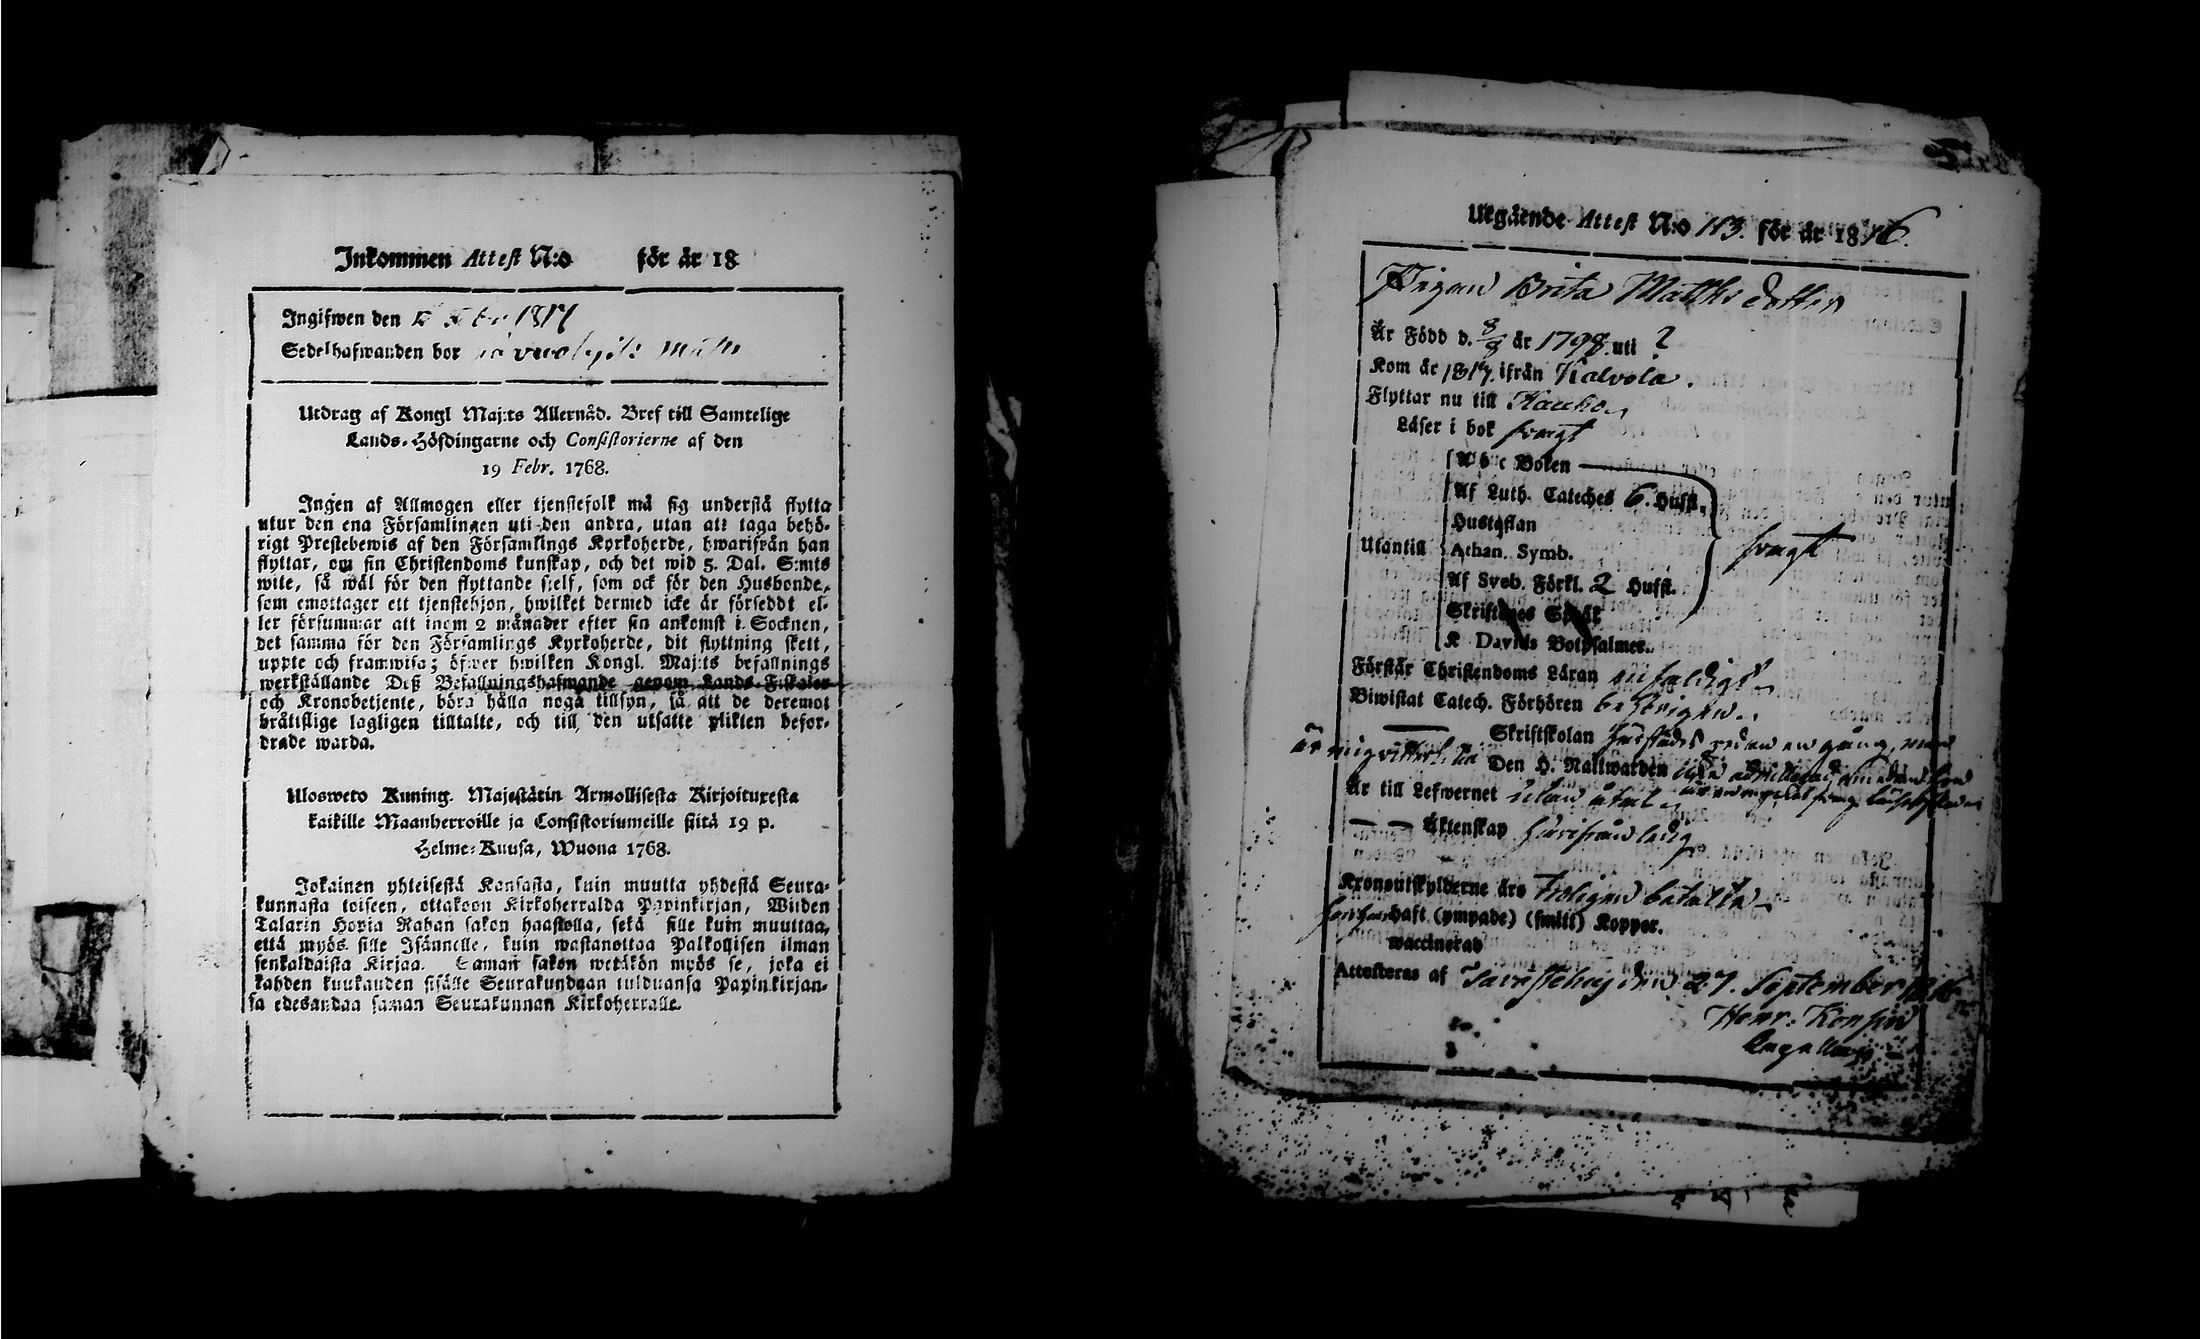 Inkommen Attest N:o för år 18
Ingifwen den 1817
Sedelhafwanden bor
Utdrag af Kongl Maj:ts Allernåd. Bref till Samtelige
Lands-Höfdingarne och Consistorierne af den
19 Febr. 1768.
Ingen af Allmogen eller tjenstefolk må sig understå flytta
utur den ena Församlingen uti den andra, utan att taga behö-
rigt Prestebewis af den Församlings Kyrkoherde, hwarifrån han
flyttar, om sin Christendoms kunskap, och det wid 5. Dal. S:mts
wite, så wäl för den flyttande sjelf, som ock för den Husbonde,
som emottager ett tjenstehjon, hwilket dermed icke är försedt el-
ler försummar att inom 2 månader efter sin ankomst i Socknen,
det samma för den Församlings Kyrkoherde, dit flyttning skett,
uppte och framwisa; öfwer hwilken Kongl. Maj:ts befallnings
werkställande Deß Befallningshafwande genom Lands-Fiskaler
och Kronobetjente, böra hålla noga tillsyn, så att de deremot
bråtislige lagligen tilltalte, och till den utsatte plikten befor-
drade warda.
Ulosweto Kuning. Majestätin Armollisesta Kirjoituxesta
kaikille Maanherroille ja Consistoriumeille siitä 19 p.
Helme-Kuusa, Wuona 1768.
Jokainen yhteisestä Kansasta, kuin muutta yhdestä Seura-
kunnasta toiseen, ottakoon Kirkoherralda Papinkirjan, Wiiden
Talarin Hopia Rahan sakon haastolla, sekä sille kuin muuttaa,
että myös sille Isännelle, kuin wastanottaa Palkollisen ilman
senkaldaista Kirjaa. Saman sakon wetäkön myös se, joka ei
kahden kuukauden sisälle Seurakundaan tulduansa Papinkirjan-
sa edesandaa saman Seurakunnan Kirkoherralle.
Utgående Attest N:o 113. för år 1816.
Pigan Brita Matths dotter
Är Född d. 8/9 år 1798. uti ?
Kom år 1817. ifrån Kalvola.
Flyttar nu till Hauho
Läser i bok svagt
Abc Boken
Af Luth. Cateches 6. Hufst.
Hustaflan
Utantill Athan. Symb. svagt
Af Sveb. Förkl. 2 Hufst.
Skriftenes Språk
K. Davids Botpsalmer.
Förstår Christendoms Läran enfaldigt
Biwistat Catech. Förhören behörigen
Skriftskolan härstädes redan en gång, men
Den H. Nattwarden
Är till Lefwernet utan åtal
Äktenskap härifrån ledig
Kronoutskylderne äro troligen betalta
haft (ympade) (smitt) Koppor.
waccinerad
Attesteras af Tavastehus den 27. September 1816
Henr: